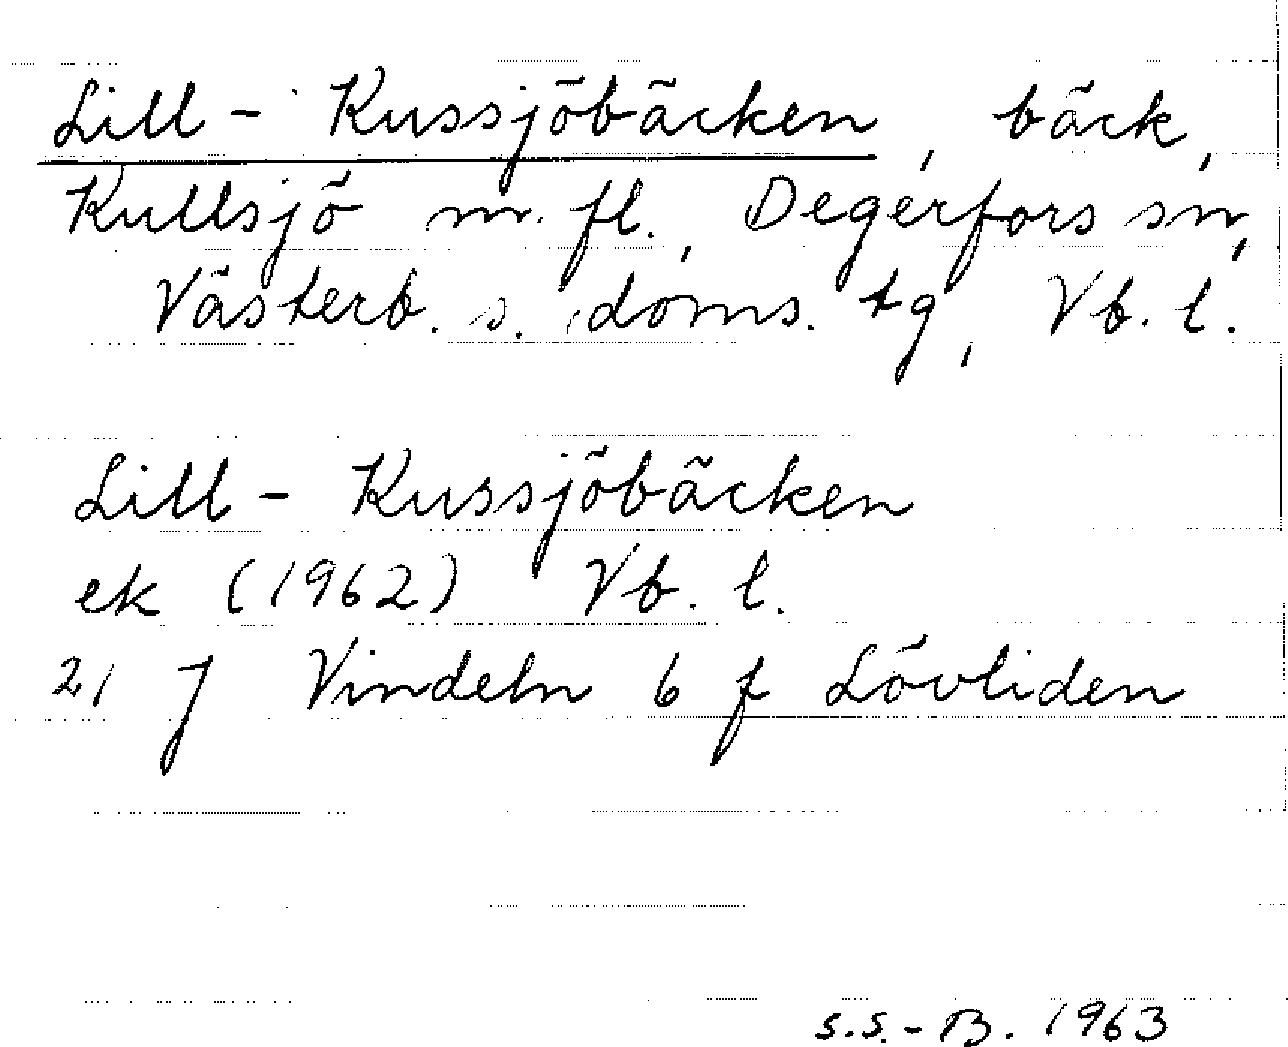 Lill-Kussjöbäcken, bäck,
Kullsjö m. fl., Degerfors sn,
Västerb. s. doms. tg, Vb. l.
Lill-Kussjöbäcken
ek (1962) Vb. l.
21 J Vindeln 6 f Lövliden
S.S.-B. 1963